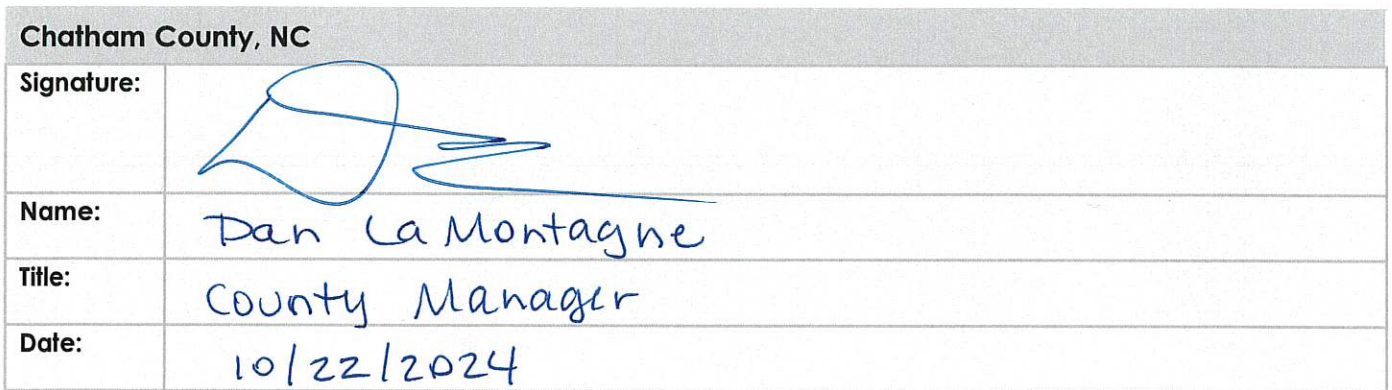 Chatham County, NC
Signature:
Name: Dan LaMontagne
Title: County Manager
Date: 10/22/2024